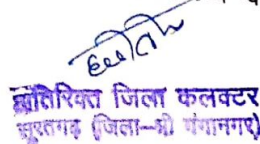 अतिरिक्त जिला कलक्टर
सूरतगढ़ (जिला-श्री गंगानगर)